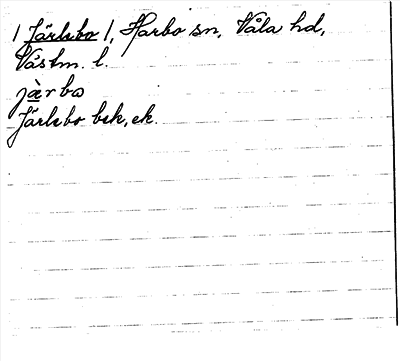 / Järlebo /, Harbo sn, Våla hd,
Västm. l.
järbo
Järlebo bsk, ek.